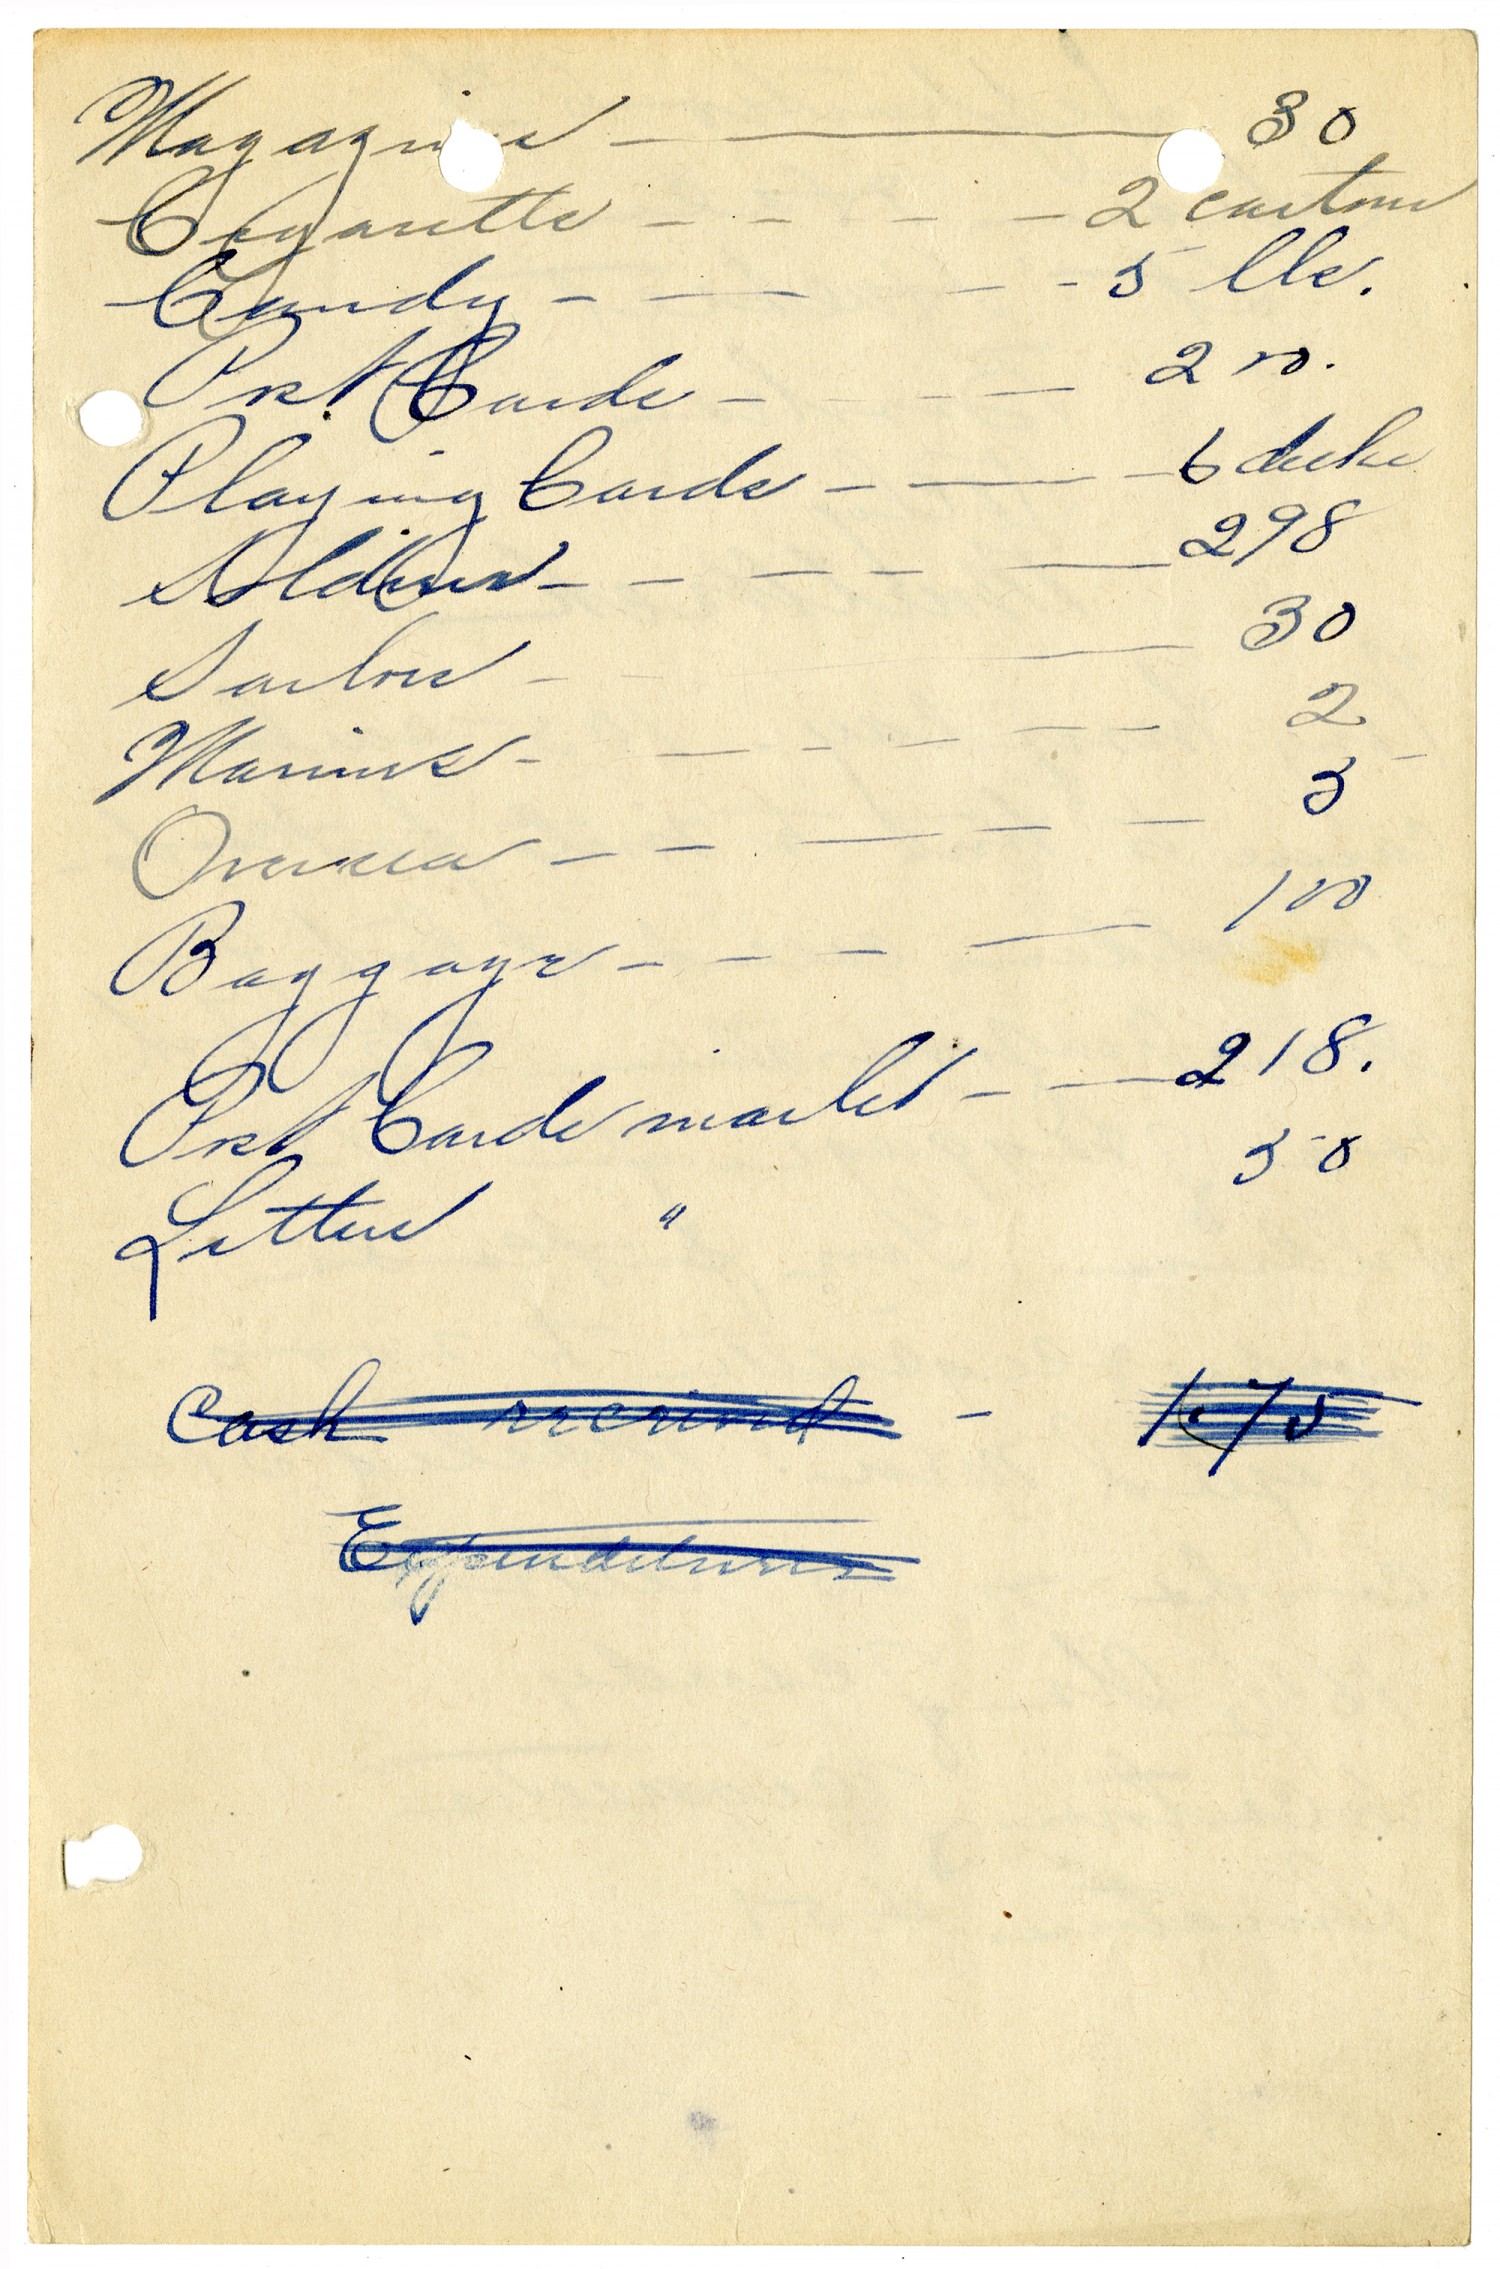 Magazines — — 30
Cigarette - - - - - 2 cartons
Candy - — - - 5 lbs.
Post Cards - - - — 200.
Playing Cards - — - 6 decks
Soldiers - - — - — 298
Sailors - - — 30
Marines - — - - - - 2
Overseas - - — - - 5
Baggage - - - - — 100
Post Cards mailed - — 218.
Letters " 50
Cash received - 1.75
Expenditures